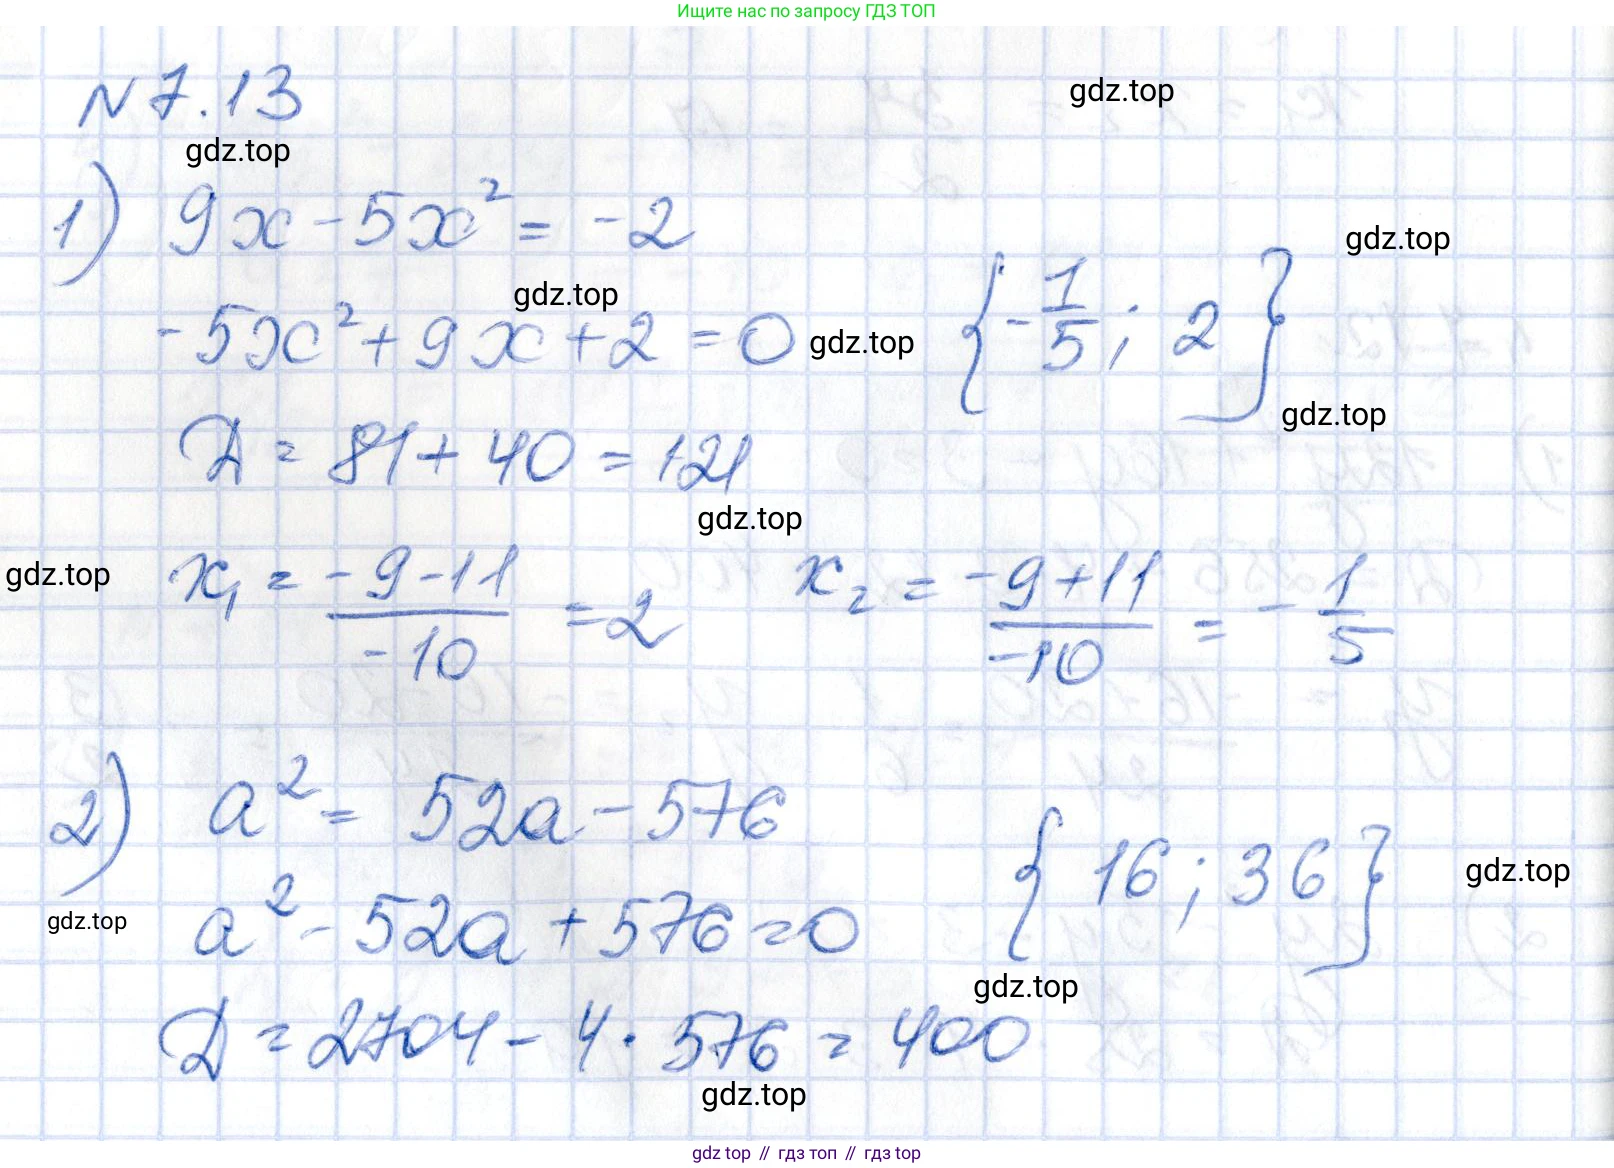 Ищите нас по запросу ГДЗ ТОП
№ 7.13
gdz.top
gdz.top
1) 9x - 5x² = -2
gdz.top
gdz.top
-5x² + 9x + 2 = 0
gdz.top
{-1/5; 2}
gdz.top
Д = 81 + 40 = 121
gdz.top
gdz.top
x₁ = (-9-11)/(-10) = 2
x₂ = (-9+11)/(-10) = -1/5
2) a² = 52a - 576
{16; 36}
gdz.top
gdz.top
a² - 52a + 576 = 0
gdz.top
Д = 2704 - 4 · 576 = 400
gdz.top
gdz top // гдз топ // гдз top